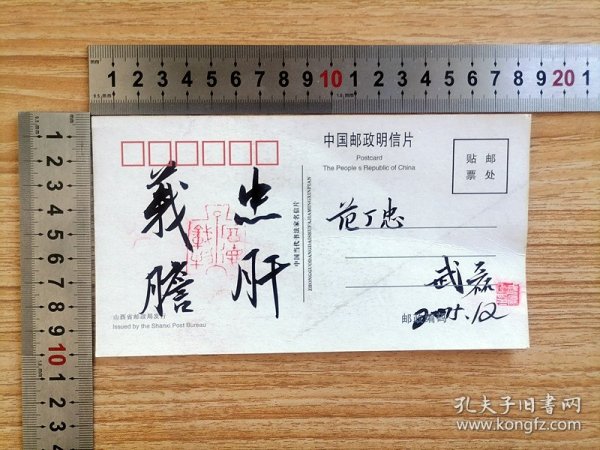 中国邮政明信片
Postcard
The People's Republic of China
贴邮
票处
忠肝
義膽
中国当代书法家名信片
ZHONGGUODANGDAISHUFAJIAMINGXINPIAN
范丁忠
武磊
邮政编码
2005.12
山西省邮政局发行
Issued by the Shanxi Post Bureau
mm
1 2 3 4 5 6 7 8 9 10 1 2 3 4 5 6 7 8 9 20 1
0.5mm
1 2 3 4 5 6 7 8 9 10 1 2 3
孔夫子旧书网
www.kongfz.com